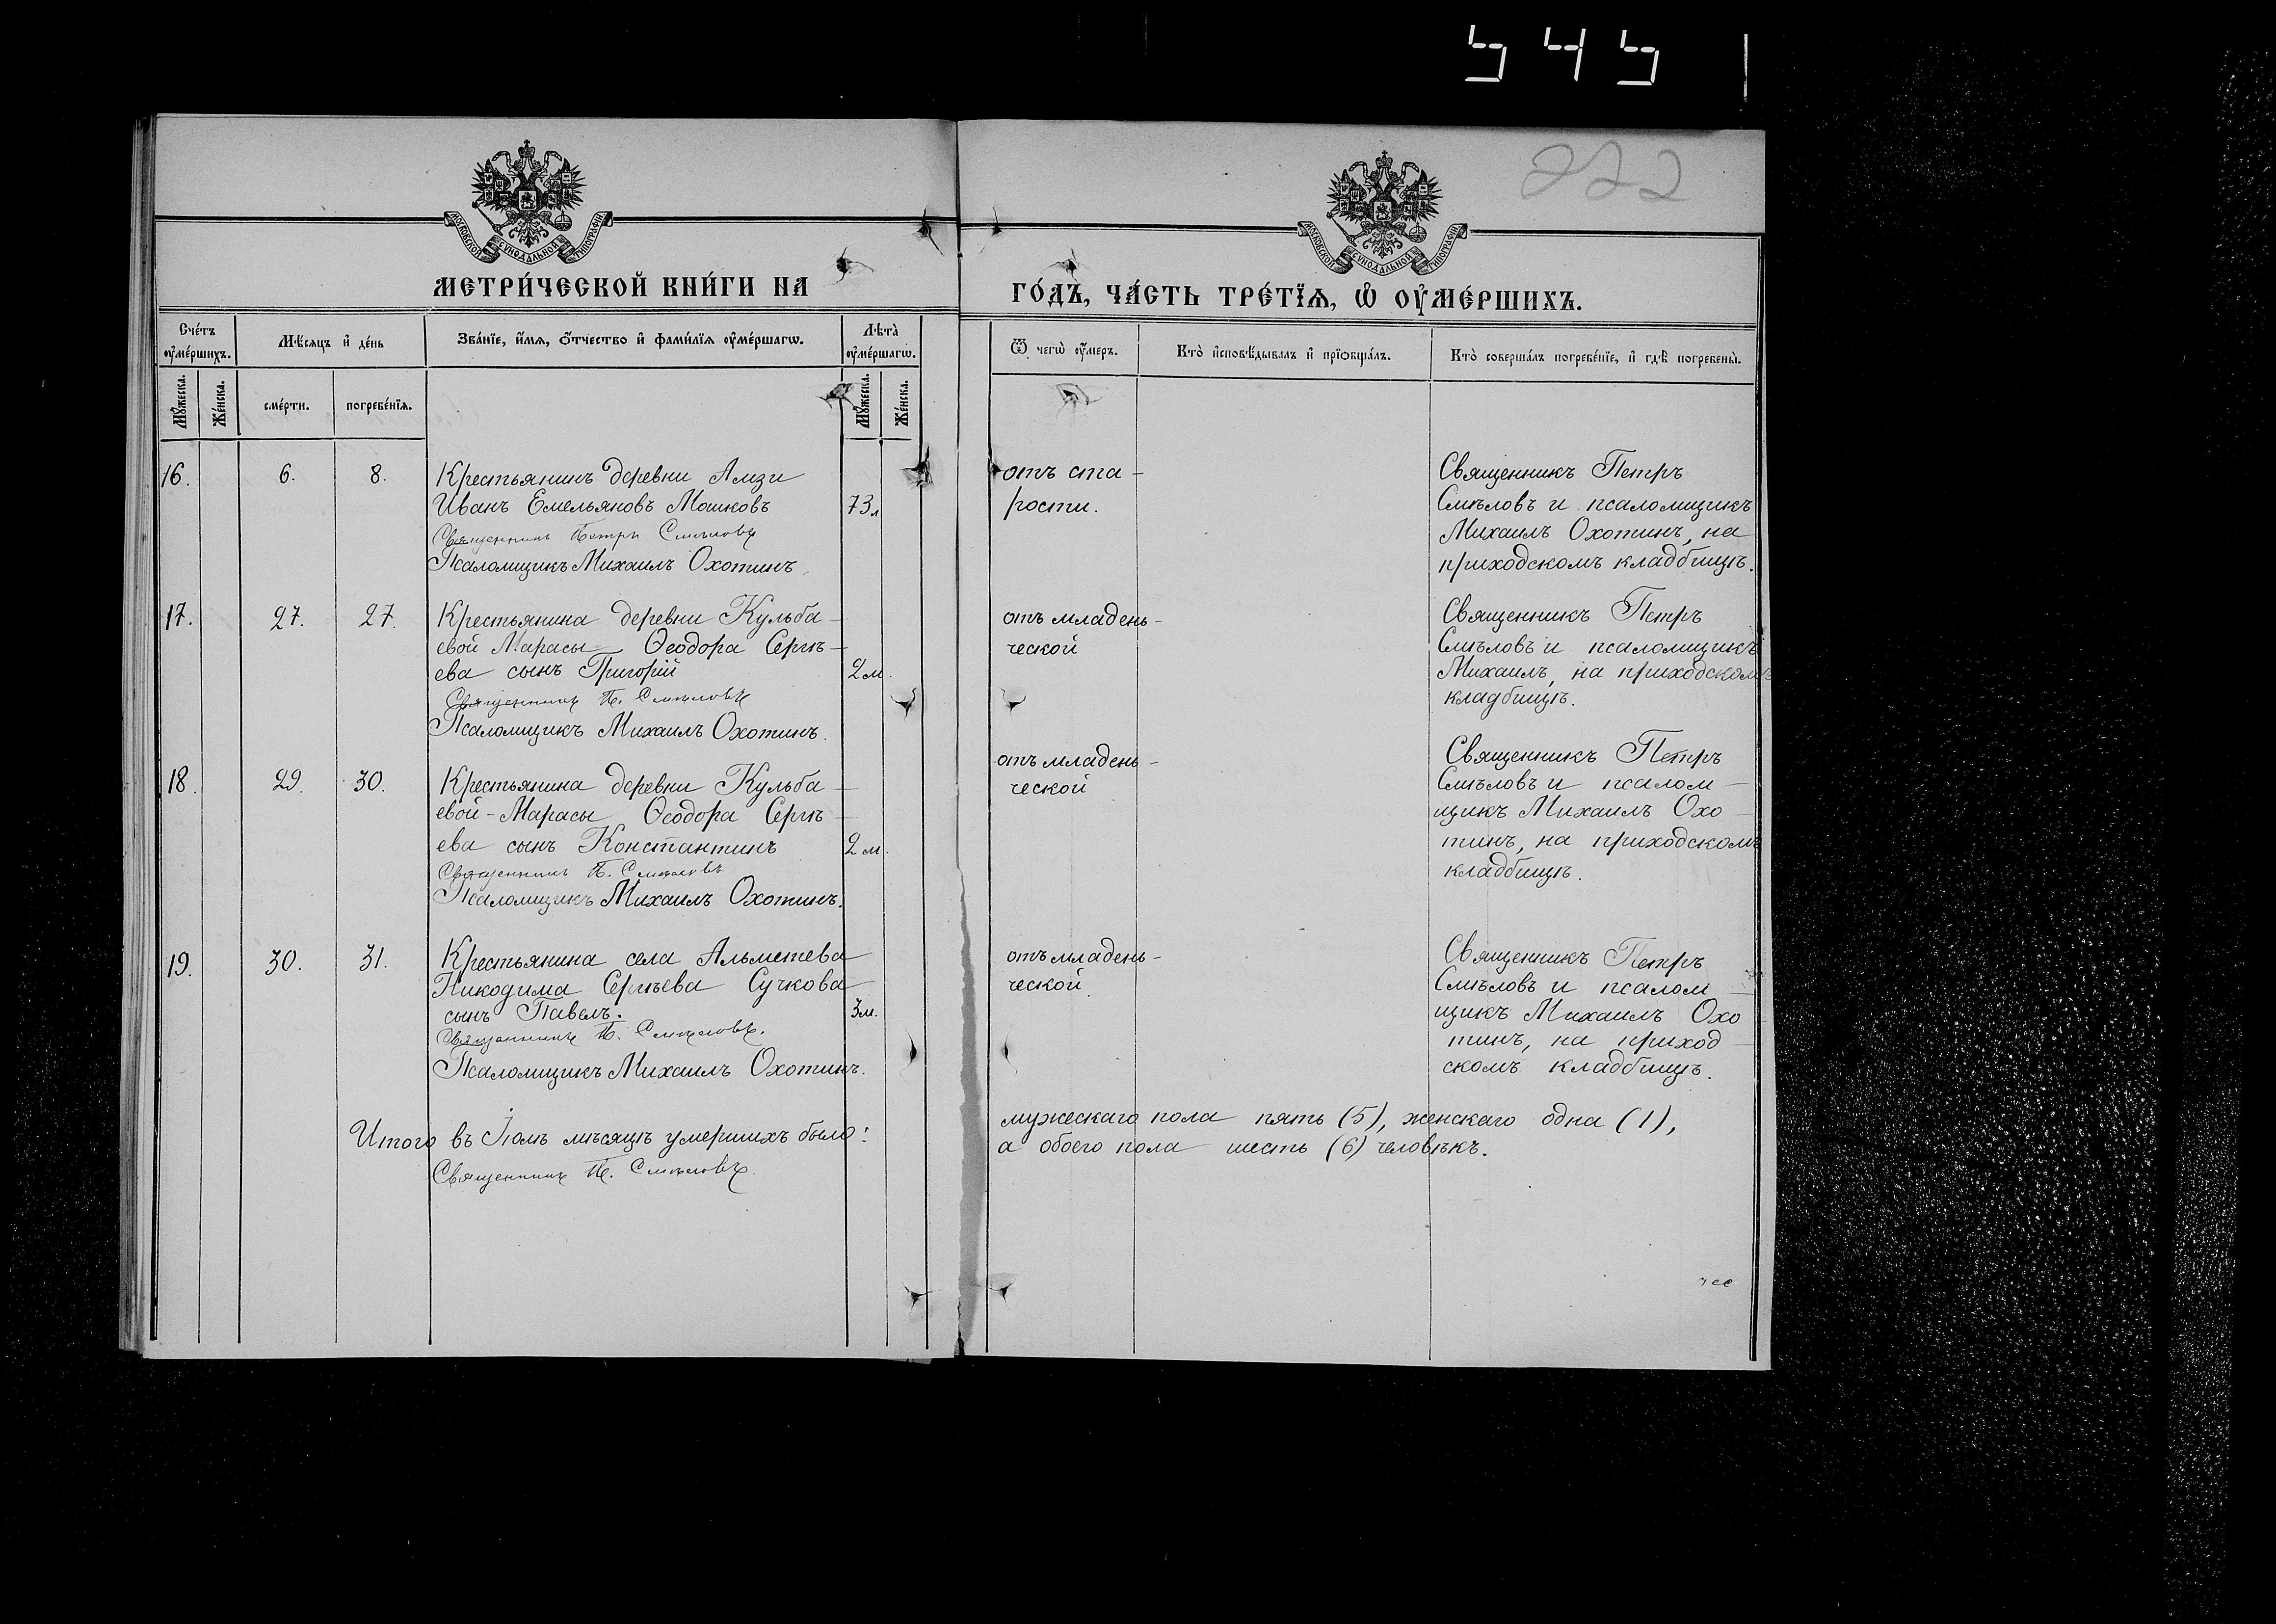 545
222
МОСКОВСКОЙ СѴНОДАЛЬНОЙ ТИПОГРАФІИ
МОСКОВСКОЙ СѴНОДАЛЬНОЙ ТИПОГРАФІИ
МЕТРИ́ЧЕСКОЙ КНИ́ГИ НА
ГО́ДЪ, ЧА́СТЬ ТРЕ́ТЇѦ, Ѡ҆ ОУ҆МЕ́РШИХЪ.
Сче́тъ оу҆ме́ршихъ.
Мѣ́сѧцъ и҆ де́нь
Зва́нїе, и҆́мѧ, ѻ҆́тчество и҆ фами́лїѧ оу҆ме́ршагѡ.
Лѣта̀ оу҆ме́ршагѡ.
Ѿ чегѡ̀ оу҆́меръ.
Кто̀ и҆сповѣ́дывалъ и҆ прїѻбща́лъ.
Кто̀ соверша́лъ погребе́нїе, и҆ гдѣ̀ погребены̀.
Мꙋ́жеска.
Же́нска.
сме́рти.
погребе́нїѧ.
Мꙋ́жеска.
Же́нска.
16. 6. 8. Крестьянинъ деревни Амзи
Иванъ Емельяновъ Мошковъ 73л
Священникъ Петръ Смѣловъ
Псаломщикъ Михаилъ Охотинъ
отъ ста-
рости.
Священникъ Петръ
Смѣловъ и псаломщикъ
Михаилъ Охотинъ, на
приходскомъ кладбищѣ.
17. 27. 27. Крестьянина деревни Кульба-
евой Марасы Ѳеодора Сергѣ-
ева сынъ Григорій 2м.
Священникъ П. Смѣловъ
Псаломщикъ Михаилъ Охотинъ.
отъ младень-
ческой
Священникъ Петръ
Смѣловъ и псаломщикъ
Михаилъ, на приходскомъ
кладбищѣ.
18. 29. 30. Крестьянина деревни Кульба-
евой-Марасы Ѳеодора Сергѣ-
ева сынъ Константинъ 2м.
Священникъ П. Смѣловъ
Псаломщикъ Михаилъ Охотинъ.
отъ младень-
ческой
Священникъ Петръ
Смѣловъ и псалом-
щикъ Михаилъ Охо-
тинъ, на приходскомъ
кладбищѣ.
19. 30. 31. Крестьянина села Альметева
Никодима Сергѣева Сучкова
сынъ Павелъ. 3м.
Священникъ П. Смѣловъ.
Псаломщикъ Михаилъ Охотинъ.
отъ младень-
ческой
Священникъ Петръ
Смѣловъ и псалом-
щикъ Михаилъ Охо-
тинъ, на приход-
скомъ кладбищѣ.
Итого въ Іюлѣ мѣсяцѣ умершихъ было:
Священникъ П. Смѣловъ.
мужескаго пола пять (5), женскаго одна (1),
а обоего пола шесть (6) человѣкъ.